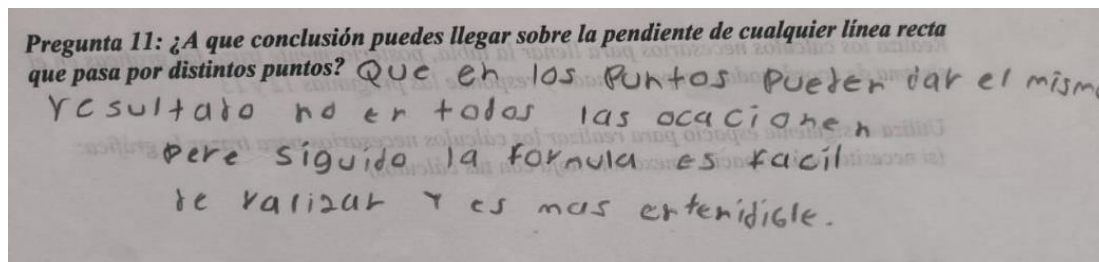 Pregunta 11: ¿A que conclusión puedes llegar sobre la pendiente de cualquier línea recta
que pasa por distintos puntos? Que en los Puntos Pueden dar el mism
resultado no en todos las ocacionen
pere siguido la formula es facil
de ralizar y es mas entenidicle.